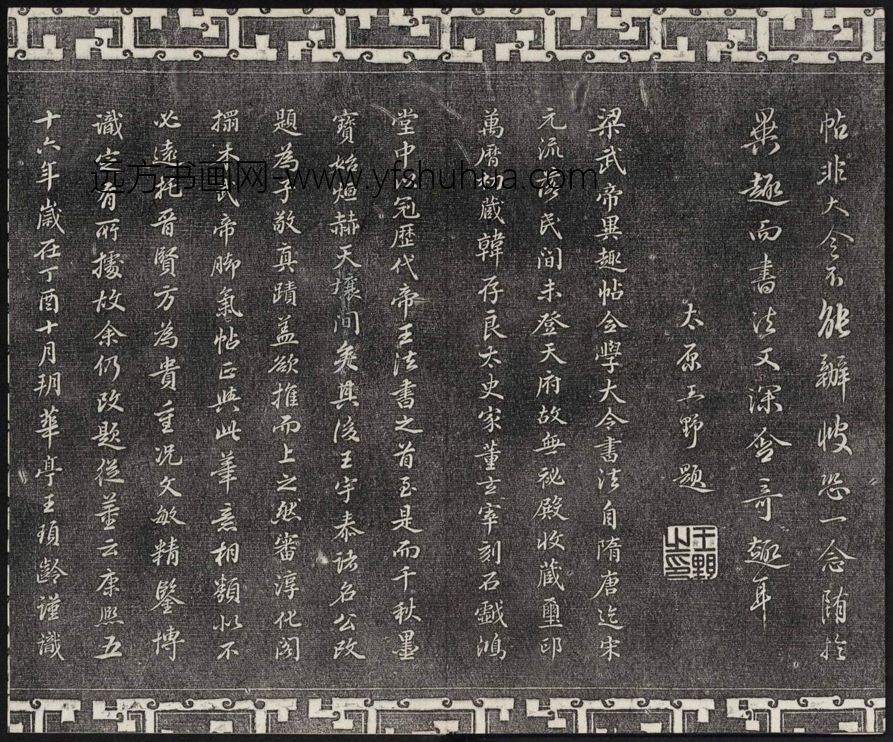 帖非大令不能辦彼恐一念随於
異趣而書法又深含奇趣耳
太原王野題
王野之印
梁武帝異趣帖全學大令書法自隋唐迄宋
元流落民間未登天府故無祕殿收藏璽印
萬曆间藏韓存良太史家董玄宰刻石戲鴻
堂中以冠歷代帝王法書之首至是而千秋墨
寶始烜赫天壤间矣其後王宇泰諸名公改
題為子敬真蹟盖欲推而上之然審淳化阁
搨本武帝脚氣帖正與此筆意相類似不
必遠托晉賢方為貴重况文敏精鑒博
識定有所據故余仍改題從董云康熙五
十六年歲在丁酉十月玥華亭王頊齡謹識
远方书画网-www.yfshuhua.com